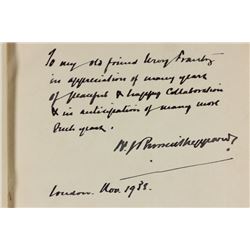 To my old friend Leroy
in appreciation of many years
of peaceful & happy collaboration
& in anticipation of many more
such years.
London. Nov. 1938.